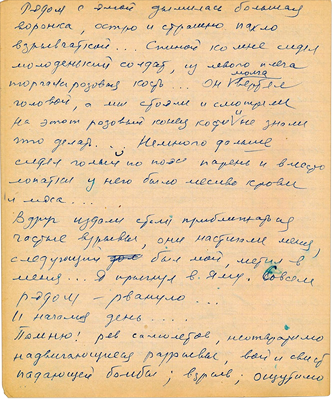 Рядом с ямой дымилась большая
воронка, остро и страшно пахло
взрывчаткой... Спиной ко мне сидел
молоденький солдат, из левого плеча
торчала розовая кость... Он мотал
головой, а мы стояли и смотрели
на этот розовый конец кости и не знали
что делать... Немного дальше
сидел голый по пояс парень и вместо
лопатки у него было месиво крови
и мяса...
Вдруг издали стали приближаться
частые взрывы, они настигали меня,
следующий был мой, метил в
меня... Я прыгнул в яму. Совсем
рядом – рвануло...
И начался день...
Помню! рев самолетов, неотвратимо
надвигающиеся разрывы, вой и свист
падающей бомбы; взрыв; ощутимо